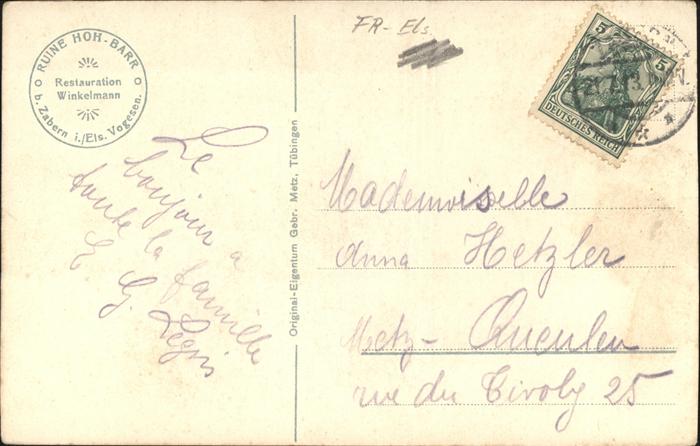 RUINE HOH-BARR
Restauration
Winkelmann
b. Zabern i./Els. Vogesen.
FR-Els.
5 5
DEUTSCHES REICH
21.7.13
Le
bonjour a
toute la famille
E G. Legris
Original-Eigentum Gebr. Metz, Tübingen
Mademoiselle
Anna Hetzler
Metz-Queuleu
rue du Tivoly 25